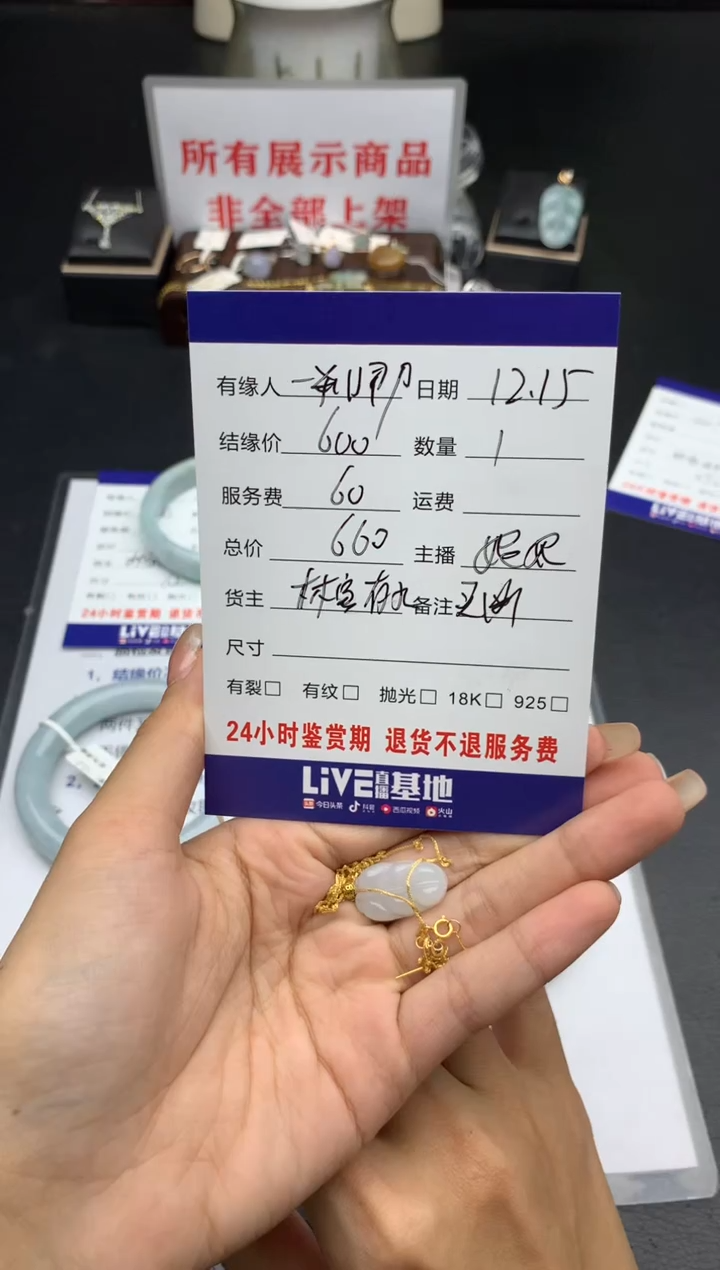 所有展示商品
非全部上架
有缘人 日期 12.15
结缘价 600 数量 1
服务费 60 运费
总价 660 主播
货主 备注
尺寸
有裂□ 有纹□ 抛光□ 18K□ 925□
24小时鉴赏期 退货不退服务费
LiVE直播基地
今日头条 抖音 西瓜视频 火山
24小时鉴赏期 退货
LiVE
1、结缘价
2、